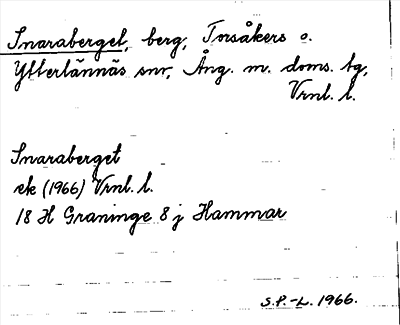 Snaraberget, berg, Torsåkers o.
Ytterlännäs snr, Ång. m. doms. tg,
Vrnl. l.
Snaraberget
ek (1966) Vrnl. l.
18 H Graninge 8 j Hammar
S.P.-L. 1966.